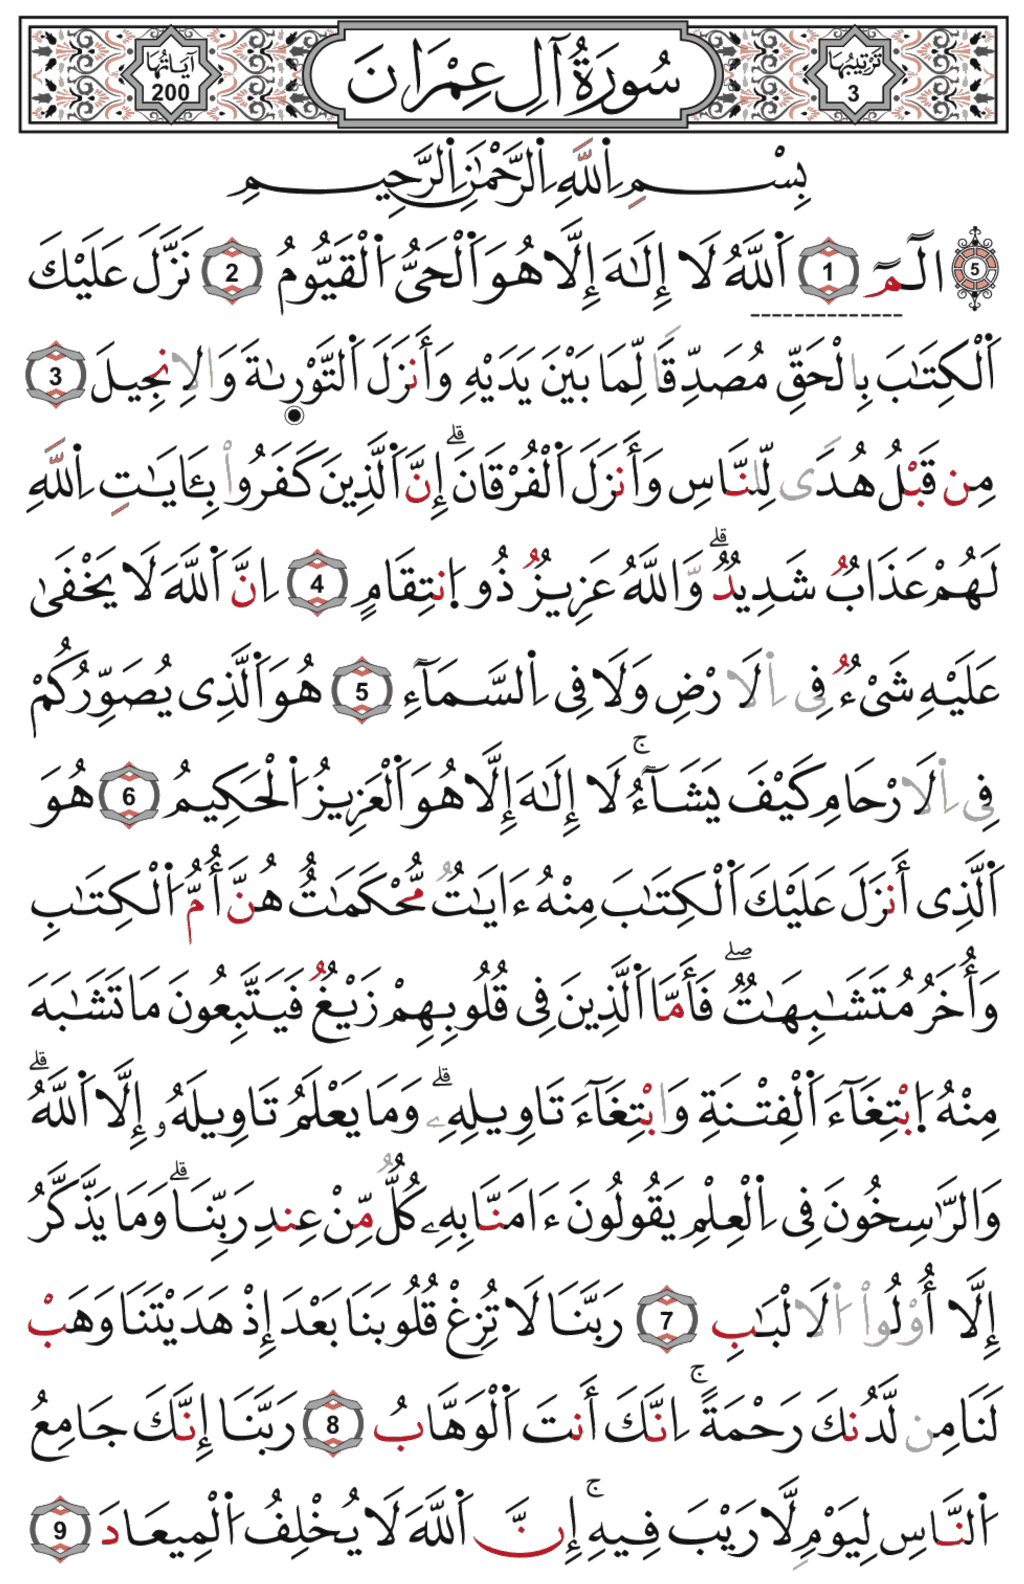 تَرْتِيبُهَا 3 سُورَةُ آلِ عِمْرَانَ آيَاتُهَا 200
بِسْمِ اِ۬للَّهِ اِ۬لرَّحْمَٰنِ اِ۬لرَّحِيمِ
5 الٓمِّٓ 1 اَ۬للَّهُ لَا إِلَٰهَ إِلَّا هُوَ اَ۬لْحَىُّ اُ۬لْقَيُّومُ 2 نَزَّلَ عَلَيْكَ
اَ۬لْكِتَٰبَ بِالْحَقِّ مُصَدِّقًا لِّمَا بَيْنَ يَدَيْهِ وَأَنزَلَ اَ۬لتَّوْرِىٰةَ وَالِانجِيلَ 3
مِن قَبْلُ هُدًى لِّلنَّاسِ وَأَنزَلَ اَ۬لْفُرْقَانَ ۗ إِنَّ اَ۬لَّذِينَ كَفَرُوا۟ بِـَٔايَٰتِ اِ۬للَّهِ
لَهُمْ عَذَابٌ شَدِيدٌ ۗ وَاللَّهُ عَزِيزٌ ذُو اُ۪نتِقَامٍ 4 اِنَّ اَ۬للَّهَ لَا يَخْفَىٰ
عَلَيْهِ شَىْءٌ فِى اِ۬لَارْضِ وَلَا فِى اِ۬لسَّمَآءِ 5 هُوَ اَ۬لَّذِى يُصَوِّرُكُمْ
فِى اِ۬لَارْحَامِ كَيْفَ يَشَآءُ ۚ لَا إِلَٰهَ إِلَّا هُوَ اَ۬لْعَزِيزُ اُ۬لْحَكِيمُ 6 هُوَ
اَ۬لَّذِى أَنزَلَ عَلَيْكَ اَ۬لْكِتَٰبَ مِنْهُ ءَايَٰتٌ مُّحْكَمَٰتٌ هُنَّ أُمُّ اُ۬لْكِتَٰبِ
وَأُخَرُ مُتَشَٰبِهَٰتٌ ۖ فَأَمَّا اَ۬لَّذِينَ فِى قُلُوبِهِمْ زَيْغٌ فَيَتَّبِعُونَ مَا تَشَٰبَهَ
مِنْهُ اُ۪بْتِغَآءَ اَ۬لْفِتْنَةِ وَابْتِغَآءَ تَاوِيلِهِۦ ۗ وَمَا يَعْلَمُ تَاوِيلَهُۥ إِلَّا اَ۬للَّهُ ۗ
وَالرَّٰسِخُونَ فِى اِ۬لْعِلْمِ يَقُولُونَ ءَامَنَّا بِهِۦ كُلٌّ مِّنْ عِندِ رَبِّنَا ۗ وَمَا يَذَّكَّرُ
إِلَّا أُوْلُوا۟ اُ۬لَالْبَٰبِ 7 رَبَّنَا لَا تُزِغْ قُلُوبَنَا بَعْدَ إِذْ هَدَيْتَنَا وَهَبْ
لَنَا مِن لَّدُنكَ رَحْمَةً ۚ اِنَّكَ أَنتَ اَ۬لْوَهَّابُ 8 رَبَّنَا إِنَّكَ جَامِعُ
اُ۬لنَّاسِ لِيَوْمٍ لَّا رَيْبَ فِيهِ ۚ إِنَّ اَ۬للَّهَ لَا يُخْلِفُ اُ۬لْمِيعَادَ 9